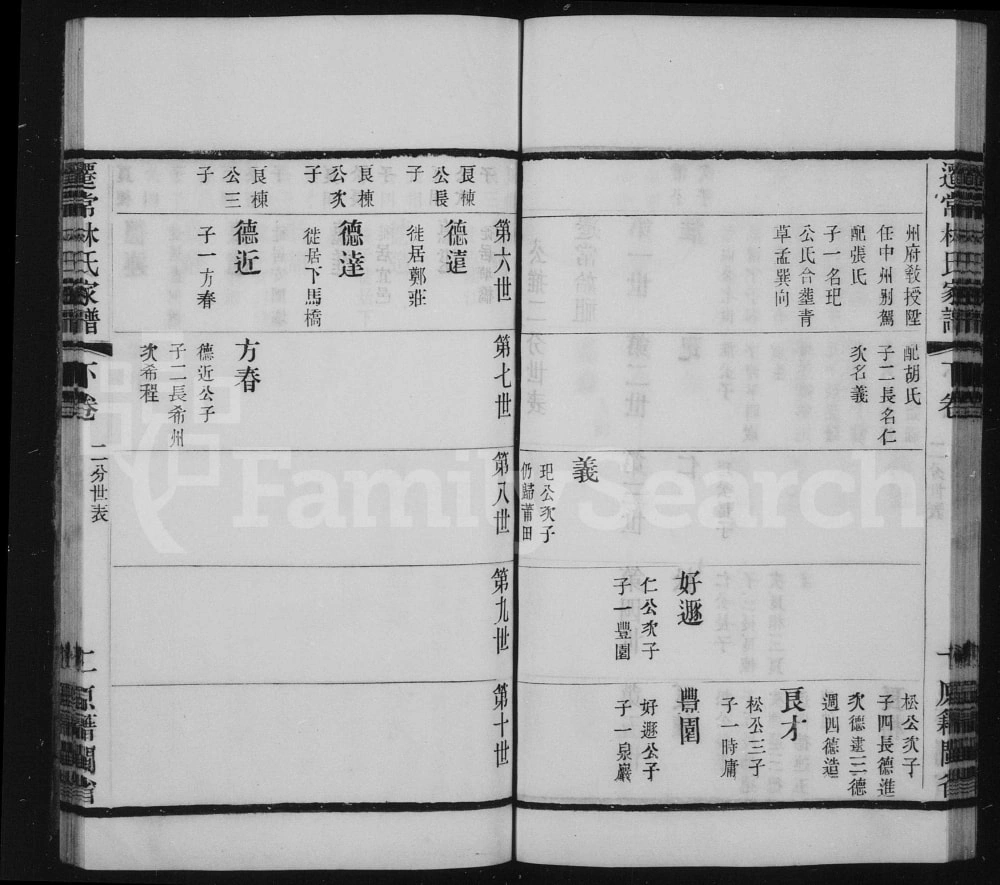 遷常林氏家譜
下卷
原籍閩省
州府敎授陞
任中州别駕
配張氏
子一名玘
公氏合塟青
草孟巽向
配胡氏
子二長名仁
次名義
義
玘公次子
仍歸莆田
好遯
仁公次子
子一豐園
松公次子
子四長德進
次德建三德
週四德造
艮才
松公三子
子一時庸
豐園
好遯公子
子一泉巖
第六世
第七世
第八世
第九世
第十世
艮棟
公長
子
德遠
徙居鄭莊
艮棟
公次
子
德達
徙居下馬橋
艮棟
公三
子
德近
子一方春
方春
德近公子
子二長希州
次希程
遷常林氏家譜
下卷
二分世表
二
原籍閩省
FamilySearch